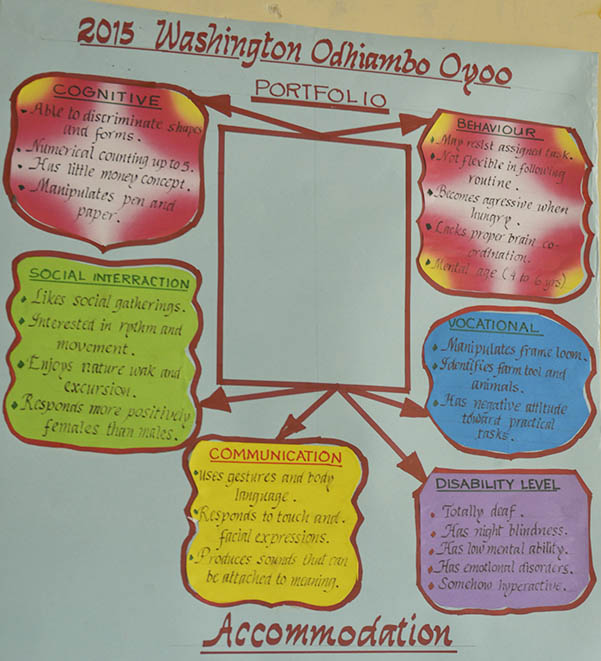 2015 Washington Odhiambo Oyoo
PORTFOLIO
COGNITIVE
Able to discriminate shapes
and forms.
Numerical counting up to 5.
Has little money concept.
Manipulates pen and
paper.
BEHAVIOUR
May resist assigned task.
Not flexible in following
routine.
Becomes agressive when
hungry.
Lacks proper brain co-
ordination.
Mental age (4 to 6 yrs)
SOCIAL INTERRACTION
Likes social gatherings.
Interested in rythm and
movement.
Enjoys nature wak and
excursion.
Responds more positively
females than males.
VOCATIONAL
Manipulates frame loom.
Identifies farm tool and
animals.
Has negative attitude
toward practical
tasks.
COMMUNICATION
uses gestures and body
language.
Responds to touch and
facial expressions.
Produces sounds that can
be attached to meaning.
DISABILITY LEVEL
Totally deaf.
Has night blindness.
Has low mental ability.
Has emotional disorders.
Somehow hyperactive.
Accommodation